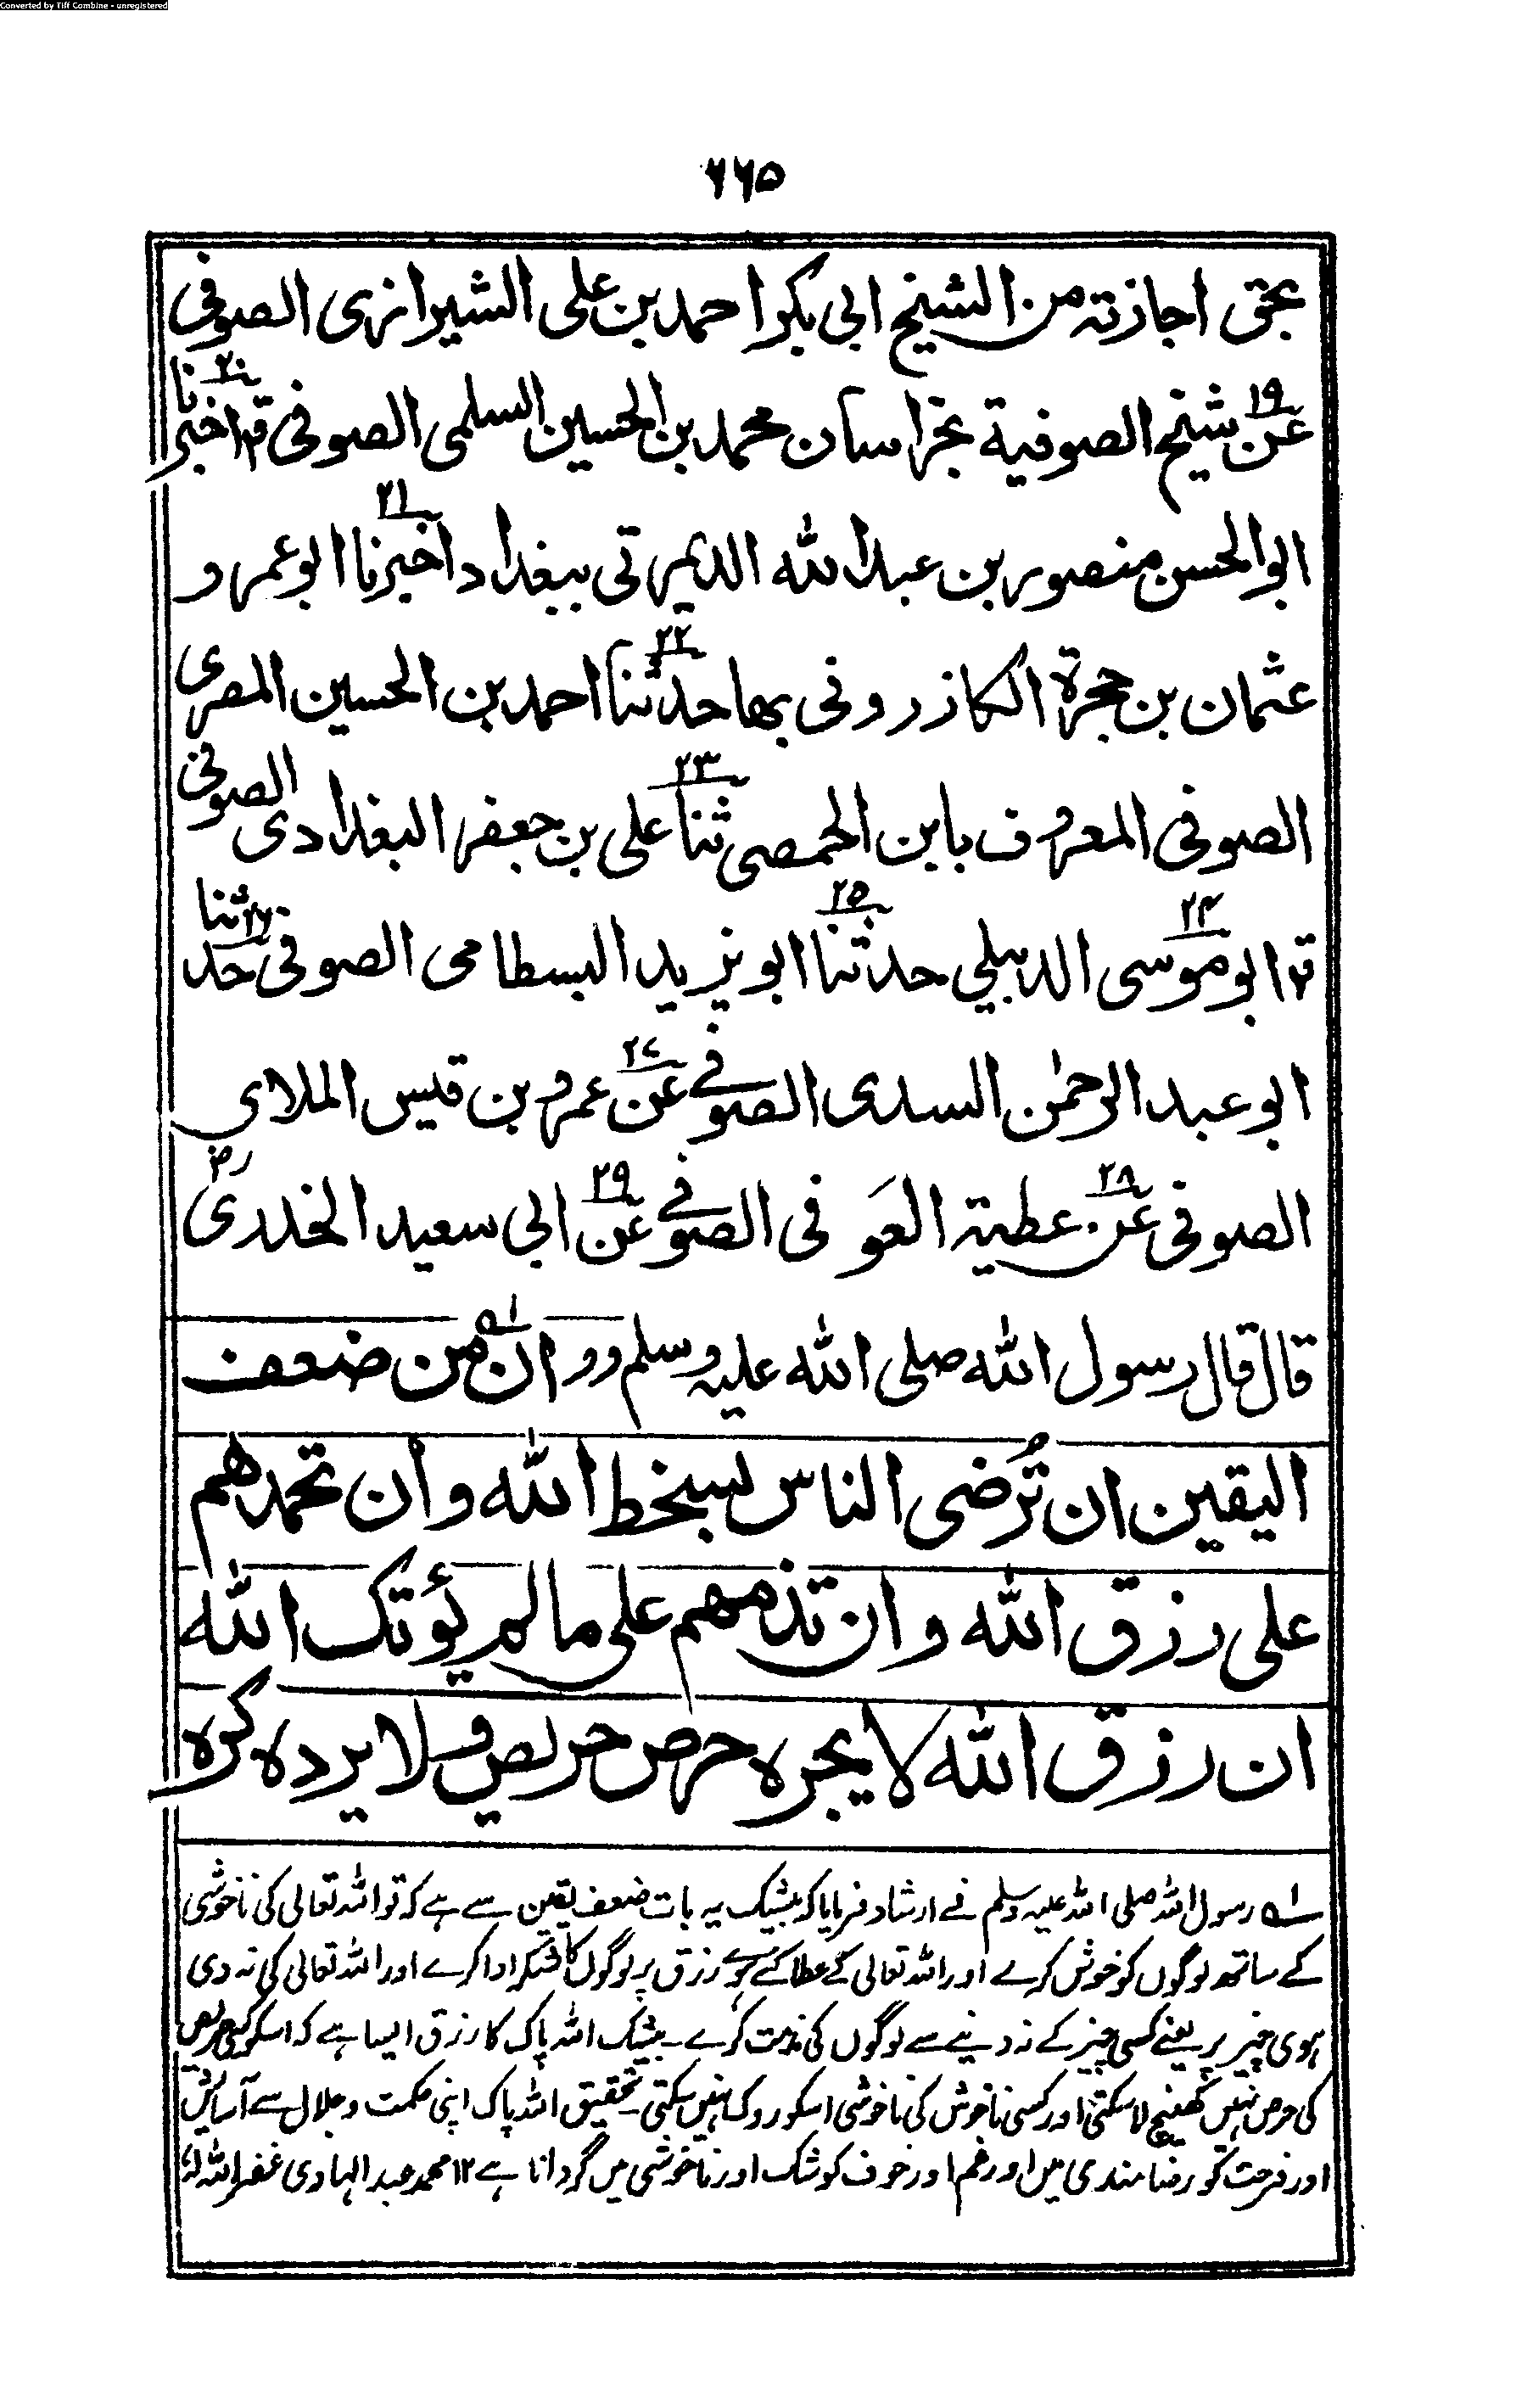 Converted by Tiff Combine - unregistered
۶۶۵
بحق اجازتہ من الشیخ ابی بکر احمد بن علی الشیرازی الصوفی
۱۹ ۲۰
عن شیخ الصوفیة بخراسان محمد بن الحسین السلمی الصوفی قر اخبرنا
۲۱
ابو الحسن منصور بن عبد اللہ الدیمرتی ببغداد اخبرنا ابو عمرو
۲۲
عثمان بن حجرة الکازرونی بھا حدثنا احمد بن الحسین المصری
۲۳
الصوفی المعروف بابن الحمصی ثنا علی بن جعفر البغدادی الصوفی
۲۴ ۲۵ ۲۶
قر ابو موسی الدبیلی حدثنا ابو یزید البسطامی الصوفی حدثنا
۲۷
ابو عبد الرحمٰن السدی الصوفی عن عمرو بن قیس الملای
۲۸ ۲۹ رض
الصوفی عن عطیتہ العَوفی الصوفی عن ابی سعید الخدری
قال قال رسول اللہ صلی اللہ علیہ وسلم وو ان من ضعف
الیقین ان تُرضی الناس بسخط اللہ وان تحمدھم
علی رزق اللہ وان تذمھم علی ما لم یؤتک اللہ
ان رزق اللہ لا یجرہ حرص حریص ولا یردہ کرہ
۱ہ رسول اللہ صلی اللہ علیہ وسلم نے ارشاد فرمایا کہ بیشک یہ بات ضعف یقین سے ہے کہ تو اللہ تعالی کی ناخوشی
کے ساتھ لوگوں کو خوش کرے اور اللہ تعالی کے عطا کئے ہوے رزق پر لوگوں کا شکر ادا کرے اور اللہ تعالی کی نہ دی
ہوی چیز پر یعنے کسی چیز کے نہ دینے سے لوگوں کی مذمت کرے ۔ بیشک اللہ پاک کا رزق ایسا ہے کہ اسکو کسی حریص
کی حرص نہیں کھینچ لا سکتی اور کسی ناخوش کی ناخوشی اسکو روک نہیں سکتی ۔ تحقیق اللہ پاک اپنی حکمت و جلال سے آسائش
اور فرحت کو رضامندی میں اور غم اور خوف کو شک اور ناخوشی میں گردانا ہے ۱۲ محمد عبد الہادی غفر اللہ لہٗ